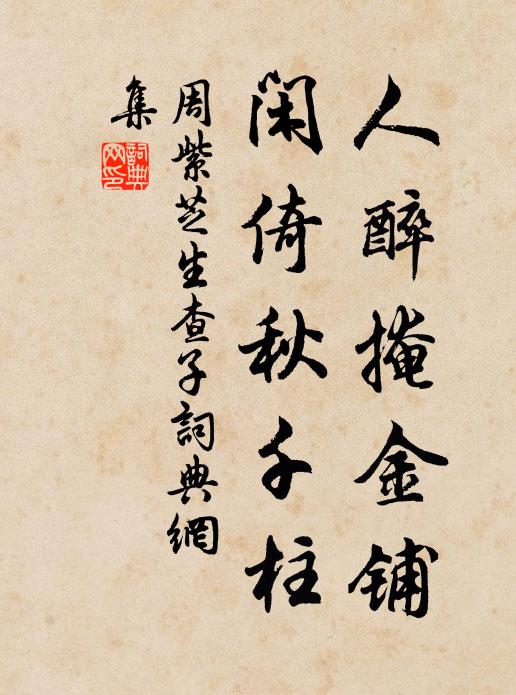 人醉掩金铺
闲倚秋千柱
周紫芝生查子詞典網
集
詞典
网印